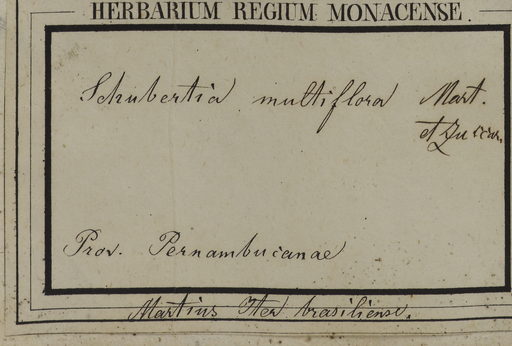 HERBARIUM REGIUM MONACENSE.
Schubertia multiflora Mart.
et Zuccar.
Prov. Pernambucanae
Martius Iter brasiliense.